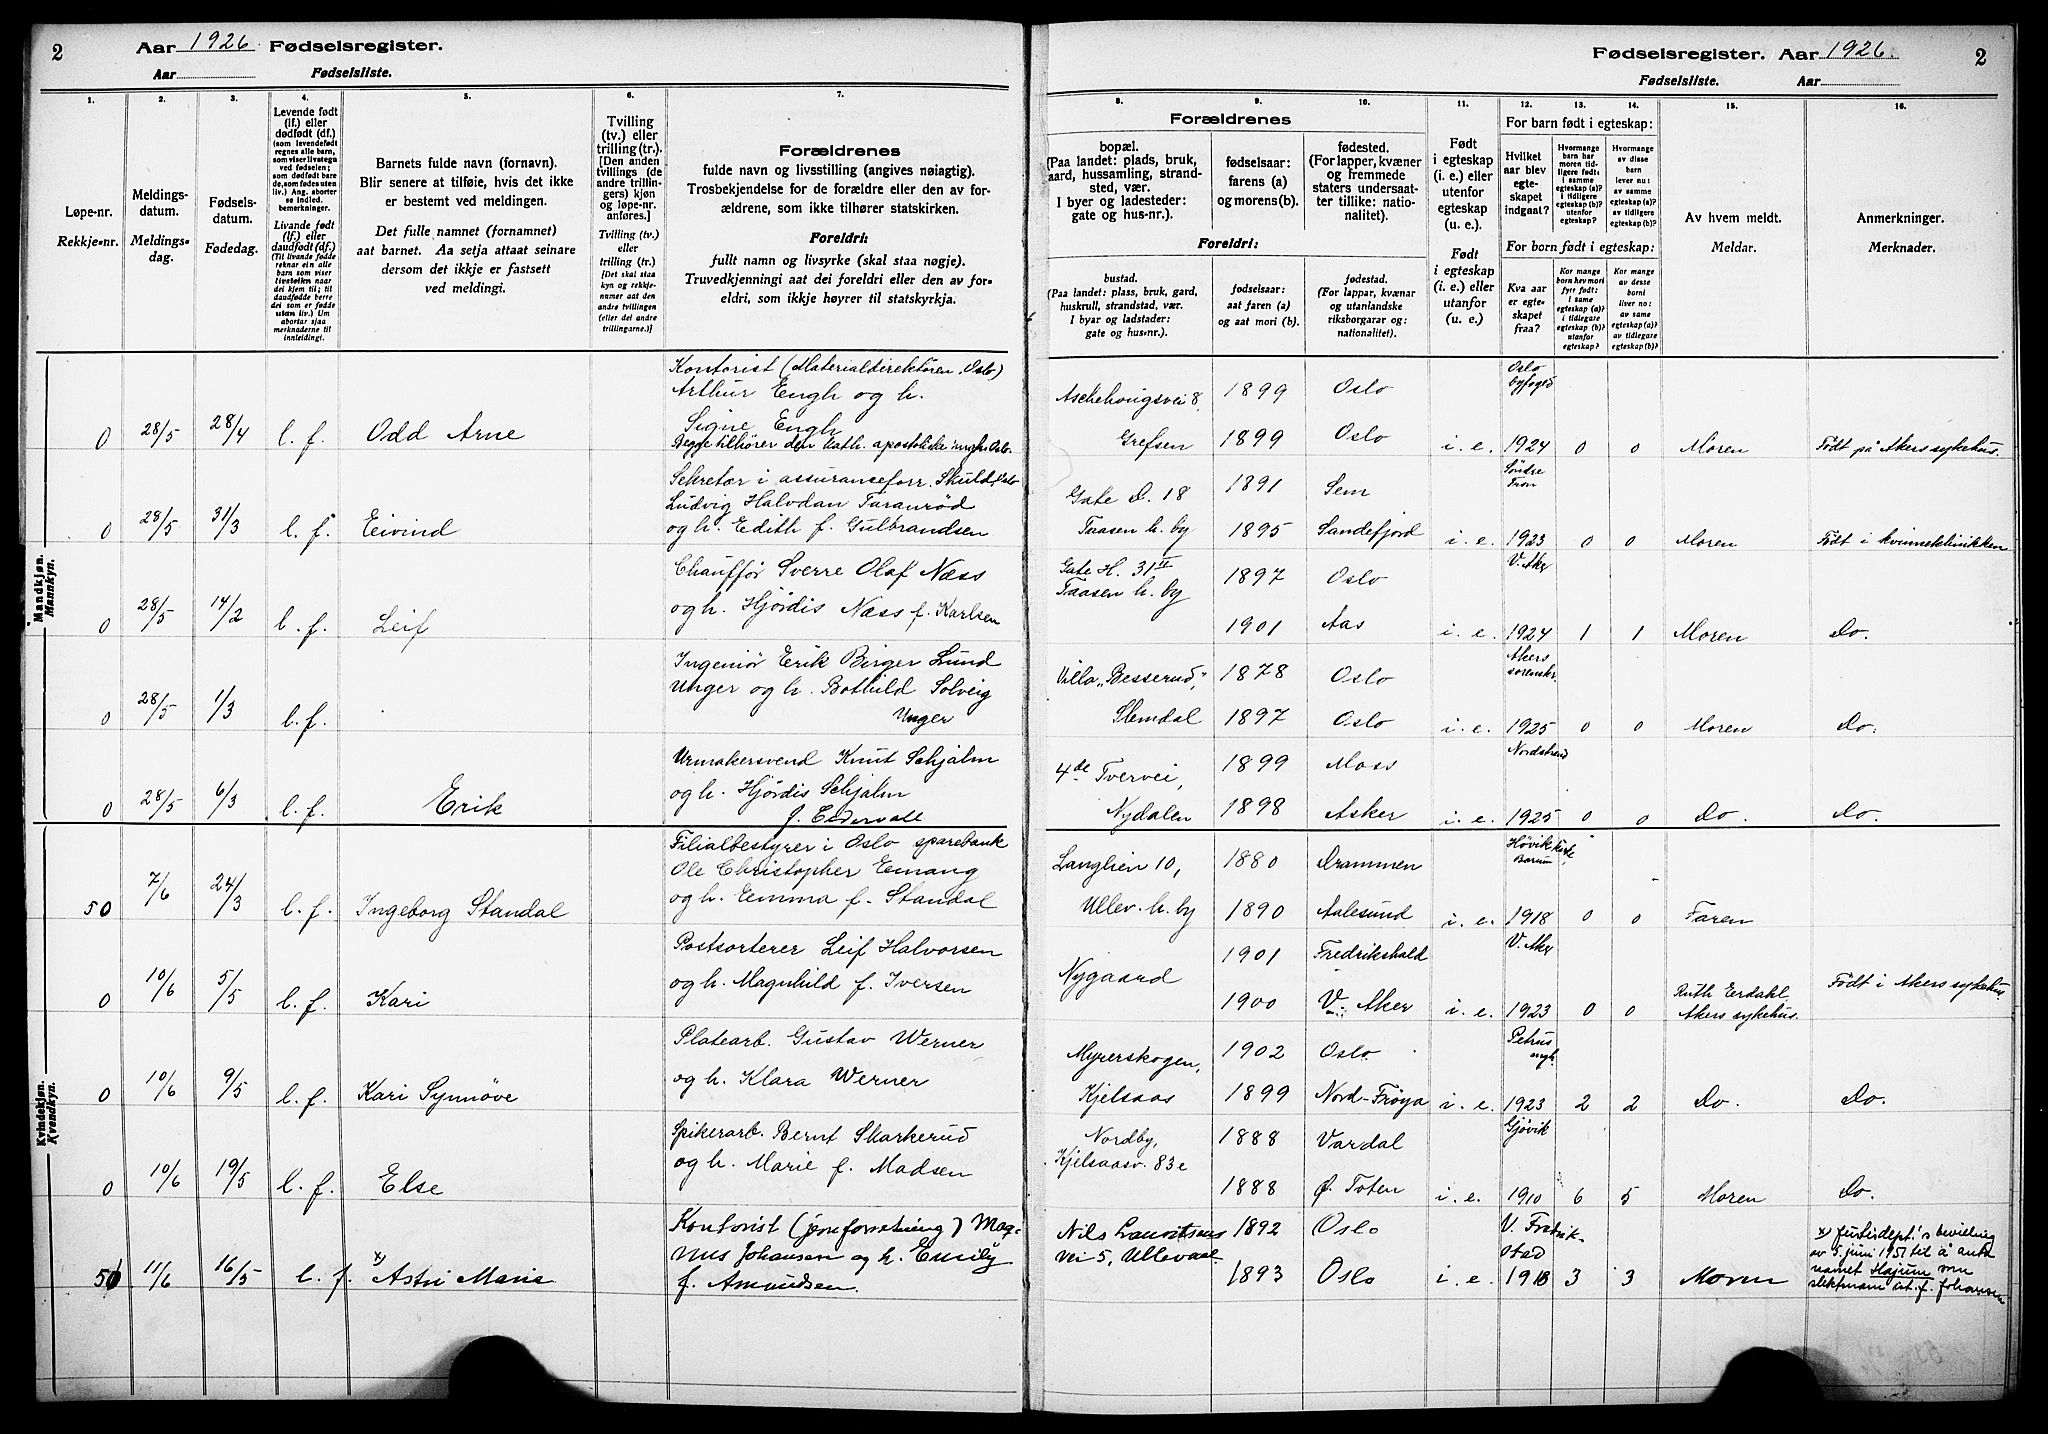 2 Aar 1926. Fødselsregister.
Aar Fødselsliste.
Fødselsregister. Aar 1926. 2
Fødselsliste. Aar
1. 2. 3. 4. 5. 6. 7.
8. 9. 10. 11. 12. 13. 14. 15. 16.
Løpe-nr.
Rekkje-nr.
Meldings-
datum.
Meldings-
dag.
Fødsels-
datum.
Fødedag.
Levende født
(lf.) eller
dødfødt (df.)
(som levendefødt
regnes alle barn,
som viser livstegn
ved fødselen;
som dødfødt bare
de, som fødes uten
liv.) Ang. aborter
se indled.
bemerkninger.
Livande født
(lf.) eller
daudfødt (df.)
(Til livande fødde
reknar ein alle
barn som viser
livsteikn naar
dei kjem til; til
daudfødde berre
dei som er fødde
utan liv.) Um
abortar sjaa
merknaderne til
innleidingi.
Barnets fulde navn (fornavn).
Blir senere at tilføie, hvis det ikke
er bestemt ved meldingen.
Det fulle namnet (fornamnet)
aat barnet. Aa setja attaat seinare
dersom det ikkje er fastsett
ved meldingi.
Tvilling
(tv.) eller
trilling (tr.).
[Den anden
tvillings (de
andre trillin-
gers) kjøn
og løpe-nr.
anføres.]
Tvilling (tv.)
eller
trilling (tr.)
[Det skal staa
kyn og rekkje-
numer aat den
andre tvillingen
(eller dei andre
trillingarne.)]
Forældrenes
fulde navn og livsstilling (angives nøiagtig).
Trosbekjendelse for de forældre eller den av for-
ældrene, som ikke tilhører statskirken.
Foreldri:
fullt namn og livsyrke (skal staa nøgje).
Truvedkjenningi aat dei foreldri eller den av for-
eldri, som ikkje høyrer til statskyrkja.
Forældrenes
bopæl.
(Paa landet: plads, bruk,
gaard, hussamling, strand-
sted, vær.
I byer og ladesteder:
gate og hus-nr.).
fødselsaar:
farens (a)
og morens (b).
fødested.
(For lapper, kvæner
og fremmede
staters undersaat-
ter tillike: natio-
nalitet).
Foreldri:
bustad.
(Paa landet: plass, bruk, gard,
huskrull, strandstad, vær.
I byar og ladstader:
gate og hus-nr.).
fødselsaar:
aat faren (a)
og aat mori (b).
fødestad.
(For lappar, kvænar
og utanlandske
riksborgarar og:
nationalitet.).
Født
i egteskap
(i. e.) eller
utenfor
egteskap
(u. e.).
Født
i egteskap
(i. e.) eller
utanfor
(u. e.).
For barn født i egteskap:
Hvilket
aar blev
egte-
skapet
indgaat?
Hvormange
barn har
moren tid-
ligere født:
i samme
egteskap (a)?
i tidligere
egteskap (b)?
utenfor
egteskap?
Hvormange
av disse
barn
lever nu:
av samme
egteskap (a)?
av tidligere
egteskap (b)?
For born født i egteskap:
Kva aar
er egte-
skapet
fraa?
Kor mange
born hev mori
fyrr født:
i same
egteskap (a)?
i tidlegare
egteskap (b)?
utanfor
egteskap?
Kor mange
av desse
borni
liver no:
av same
egteskap (a)?
av tidlegare
egteskap (b)?
Av hvem meldt.
Meldar.
Anmerkninger.
Merknader.
Mandkjøn.
Mannkyn.
Kontorist (Materialdirektøren, Oslo)
Arthur Engh og h.
Signe Engh
Begge tilhører den kath. apostoliske mgh. Oslo.
0 28/5 28/4 l. f. Odd Arne
Aschehougsvei 8, 1899 Oslo Oslo byfoged
Grefsen 1899 Oslo i. e. 1924 0 0 Moren Født på Akers sykehus.
Sekretær i assuranceforr. Skuld, Oslo
Ludvig Halvdan Taranrød
og h. Edith f. Gulbrandsen
0 28/5 31/3 l. f. Eivind
Gate D. 18 1891 Sem Søndre Fron
Taasen h. by 1895 Sandefjord i. e. 1923 0 0 Moren Født i kvinneklinikken
Chauffør Sverre Olaf Næss
og h. Hjørdis Næss f. Karlsen
0 28/5 14/2 l. f. Leif
Gate H. 31 II 1897 Oslo V. Aker
Taasen h. by
1901 Aas i. e. 1924 1 1 Moren Do.
Ingeniør Erik Birger Lund
Unger og h. Bothild Solveig
Unger
0 28/5 1/3 l. f.
Villa „Besserud", 1878 Oslo Akers sorenskr.
Slemdal 1897 Oslo i. e. 1925 0 0 Moren Do.
Urmakersvend Knut Schjalm
og h. Hjørdis Schjalm
f. Cedervall
0 28/5 6/3 l. f. Erik
4de Tvervei, 1899 Moss Nordstrand
Nydalen 1898 Asker i. e. 1925 0 0 Do. Do.
Kvindekjøn.
Kvendkyn.
Filialbestyrer i Oslo sparebank
Ole Christopher Eemang
og h. Emma f. Standal
50 7/6 24/3 l. f. Ingeborg Standal
Langlien 10, 1880 Drammen Høvik kirke, Bærum
Ullev. h. by 1890 Aalesund i. e. 1918 0 0 Faren
Postsorterer Leif Halvorsen
og h. Magnhild f. Iversen
0 10/6 5/5 l. f. Kari
Nygaard 1901 Fredrikshald V. Aker
1900 V. Aker i. e. 1923 0 0 Ruth Eerdahl, Akers sykehus. Født i Akers sykehus
Platearb. Gustav Werner
og h. Klara Werner
0 10/6 9/5 l. f. Kari Synnøve
Myrerskogen, 1902 Oslo Petrus mgh.
Kjelsaas 1899 Nord-Frøya i. e. 1923 2 2 Do. Do.
Spikerarb. Bernt Skarkerud
og h. Marie f. Madsen
0 10/6 19/5 l. f. Else
Nordby, 1888 Vardal Gjøvik
Kjelsaasv. 83e
1888 Ø. Toten i. e. 1910 6 5 Moren Do.
Kontorist (jernforretning) Mag-
nus Johansen og h. Emily
f. Amundsen.
50 11/6 16/5 l. f. x) Astri Marie
Nils Lauritsens 1892 Oslo V. Fredrik-
vei 5, Ullevaal stad
1893 Oslo i. e. 1918 3 3 Moren
x) Justisdept.'s bevilling
av 5. juni 1951 til å anta
namet Hajum som
slektsnam ist. f. Johansen